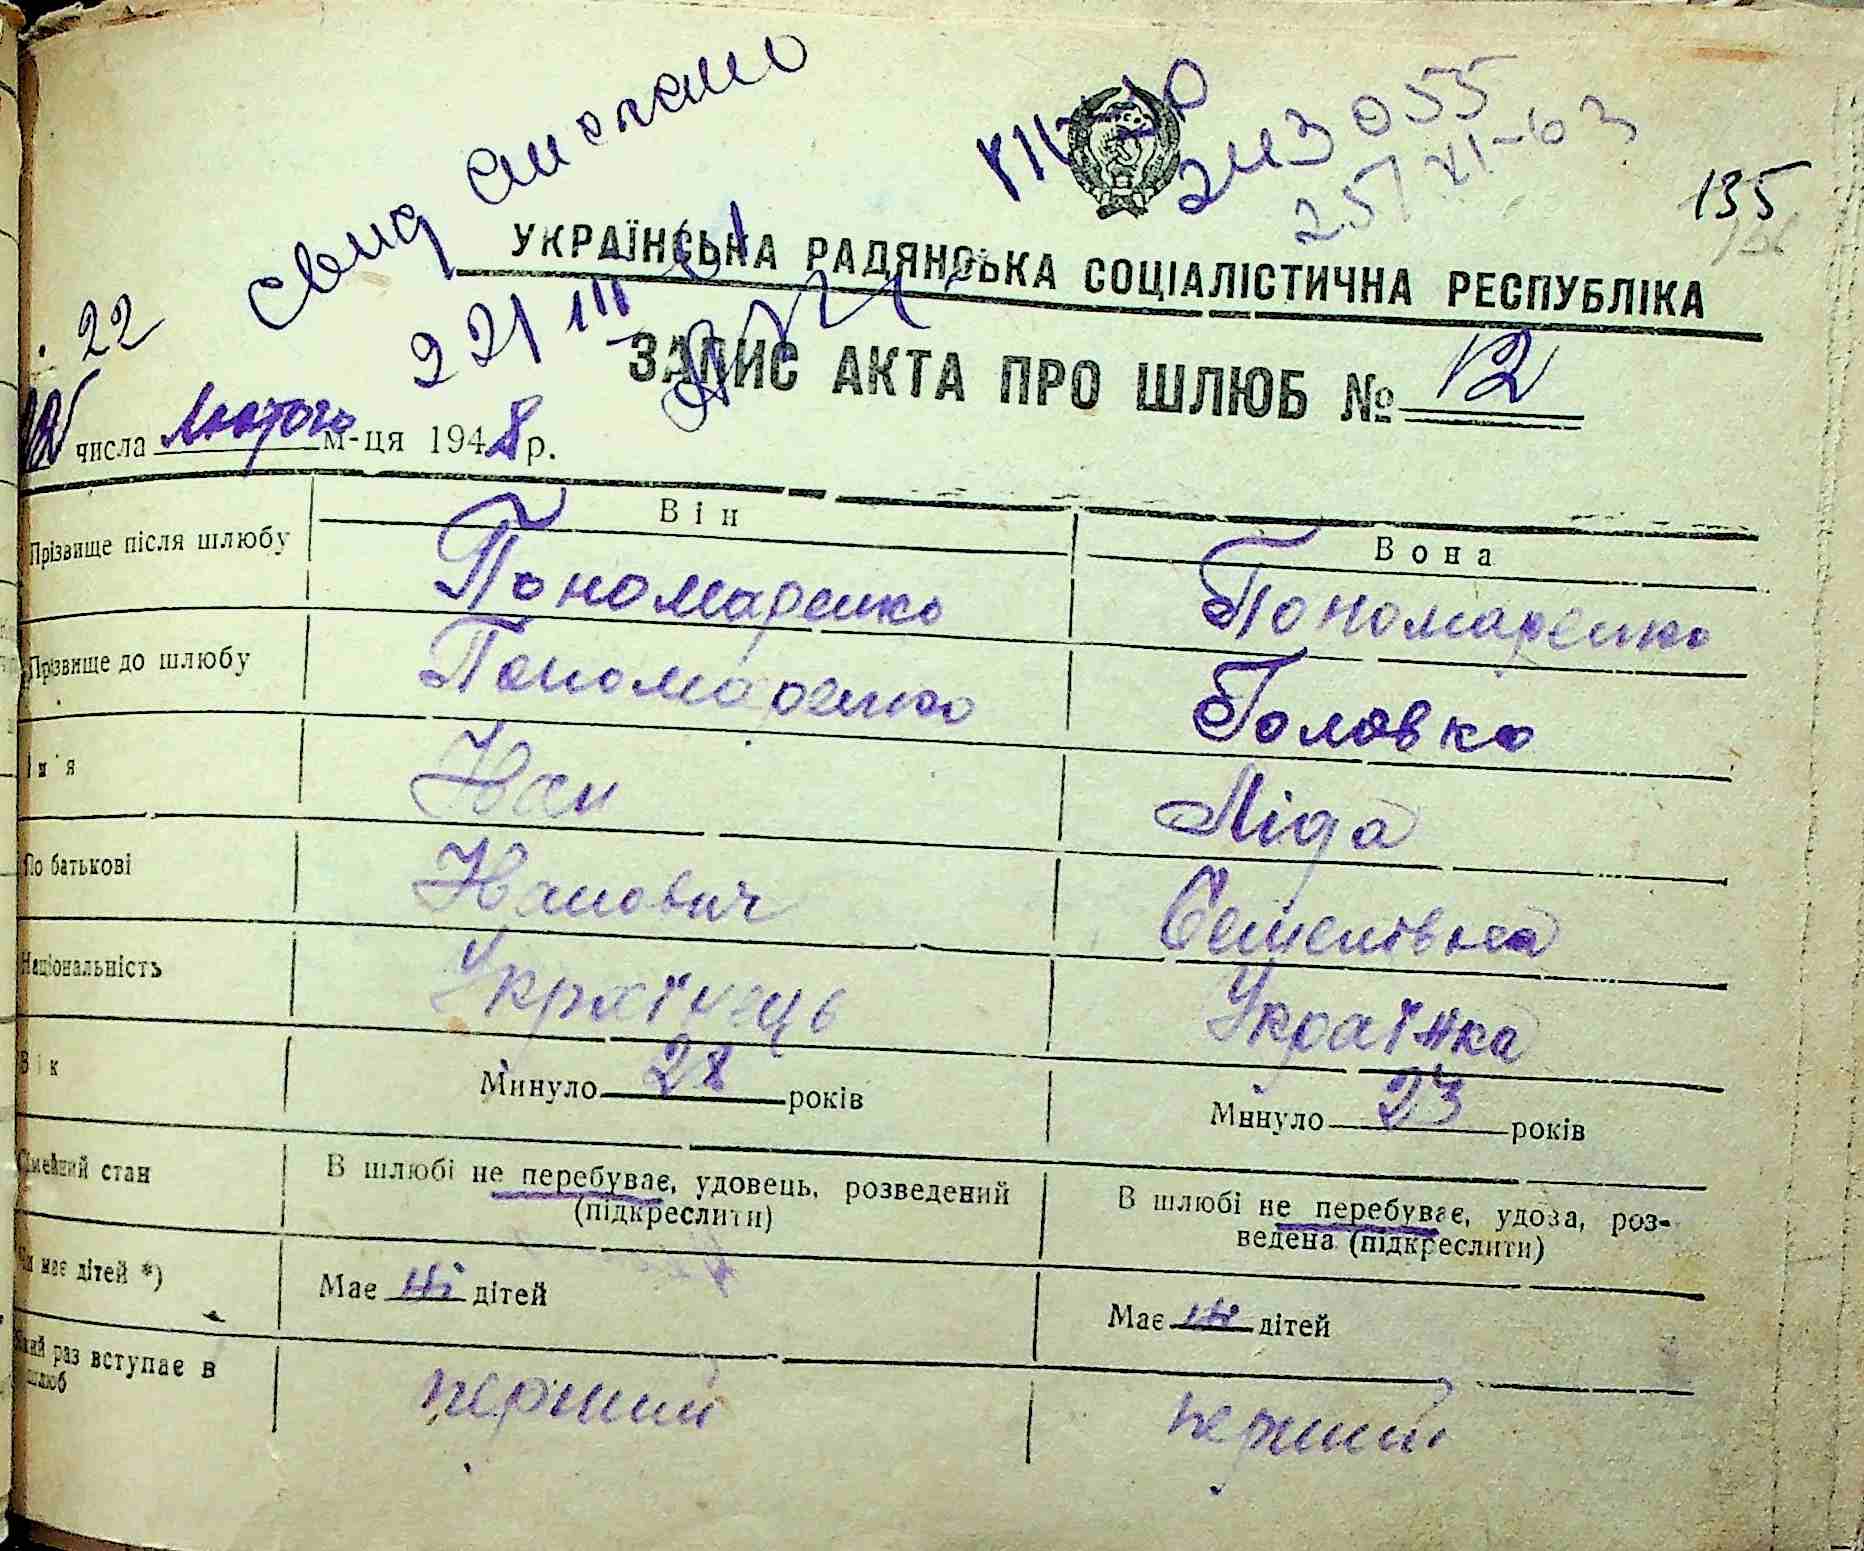 135
УКРАЇНСЬКА РАДЯНСЬКА СОЦІАЛІСТИЧНА РЕСПУБЛІКА
22
ЗАПИС АКТА ПРО ШЛЮБ № 12
числа лютого м-ця 1948 р.
Він Вона
Прізвище після шлюбу Пономаренко Пономаренко
Прізвище до шлюбу Пономаренко Головко
Ім'я Іван Ліда
По батькові Іванович Семенівна
Національність Українець Українка
Вік Минуло 28 років Минуло 23 років
Сімейний стан В шлюбі не перебуває, удовець, розведений (підкреслити) В шлюбі не перебуває, удова, розведена (підкреслити)
Чи має дітей *) Має ні дітей Має ні дітей
Який раз вступає в шлюб перший перший